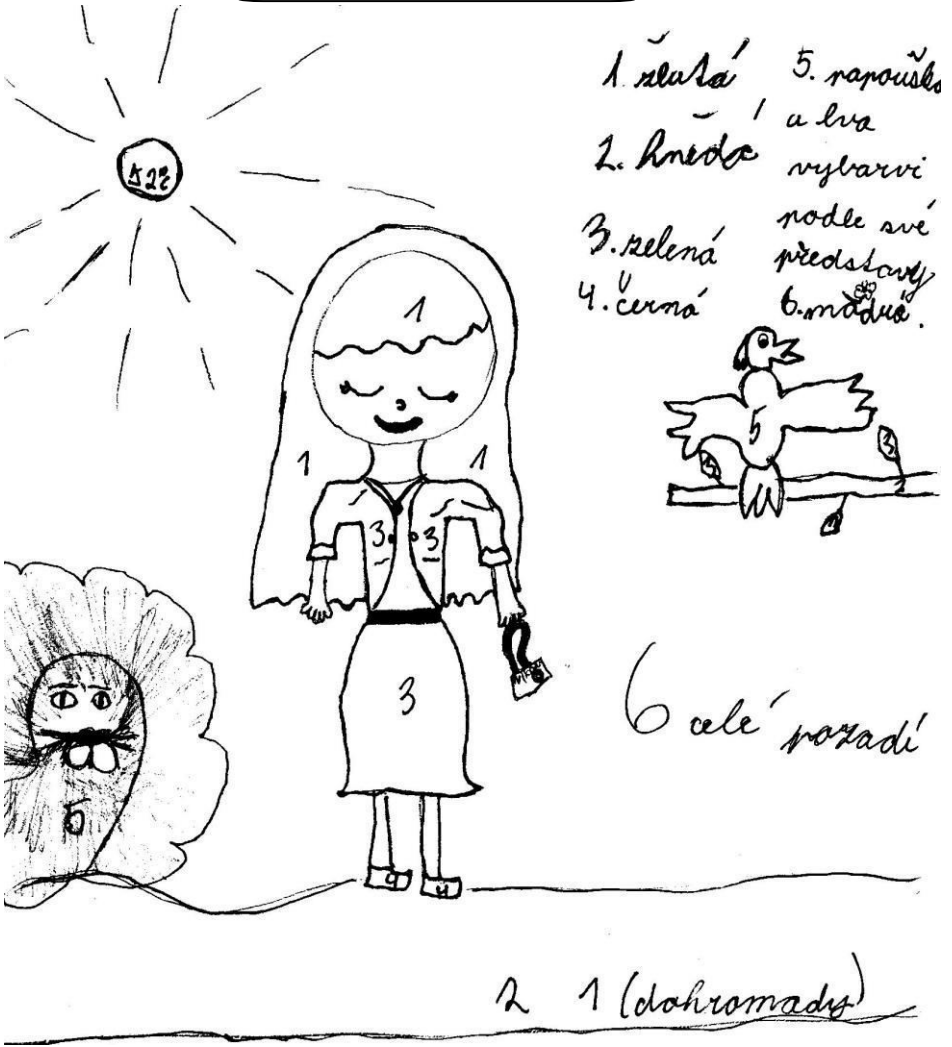 1 žlutá
2. hnědá
3. zelená
4. černá
5. papouška
a lva
vybarvi
podle své
představy
6. modrá.
1
1
1
5
3
3
3
5
6 celé pozadí
4
4
2 1 (dohromady)